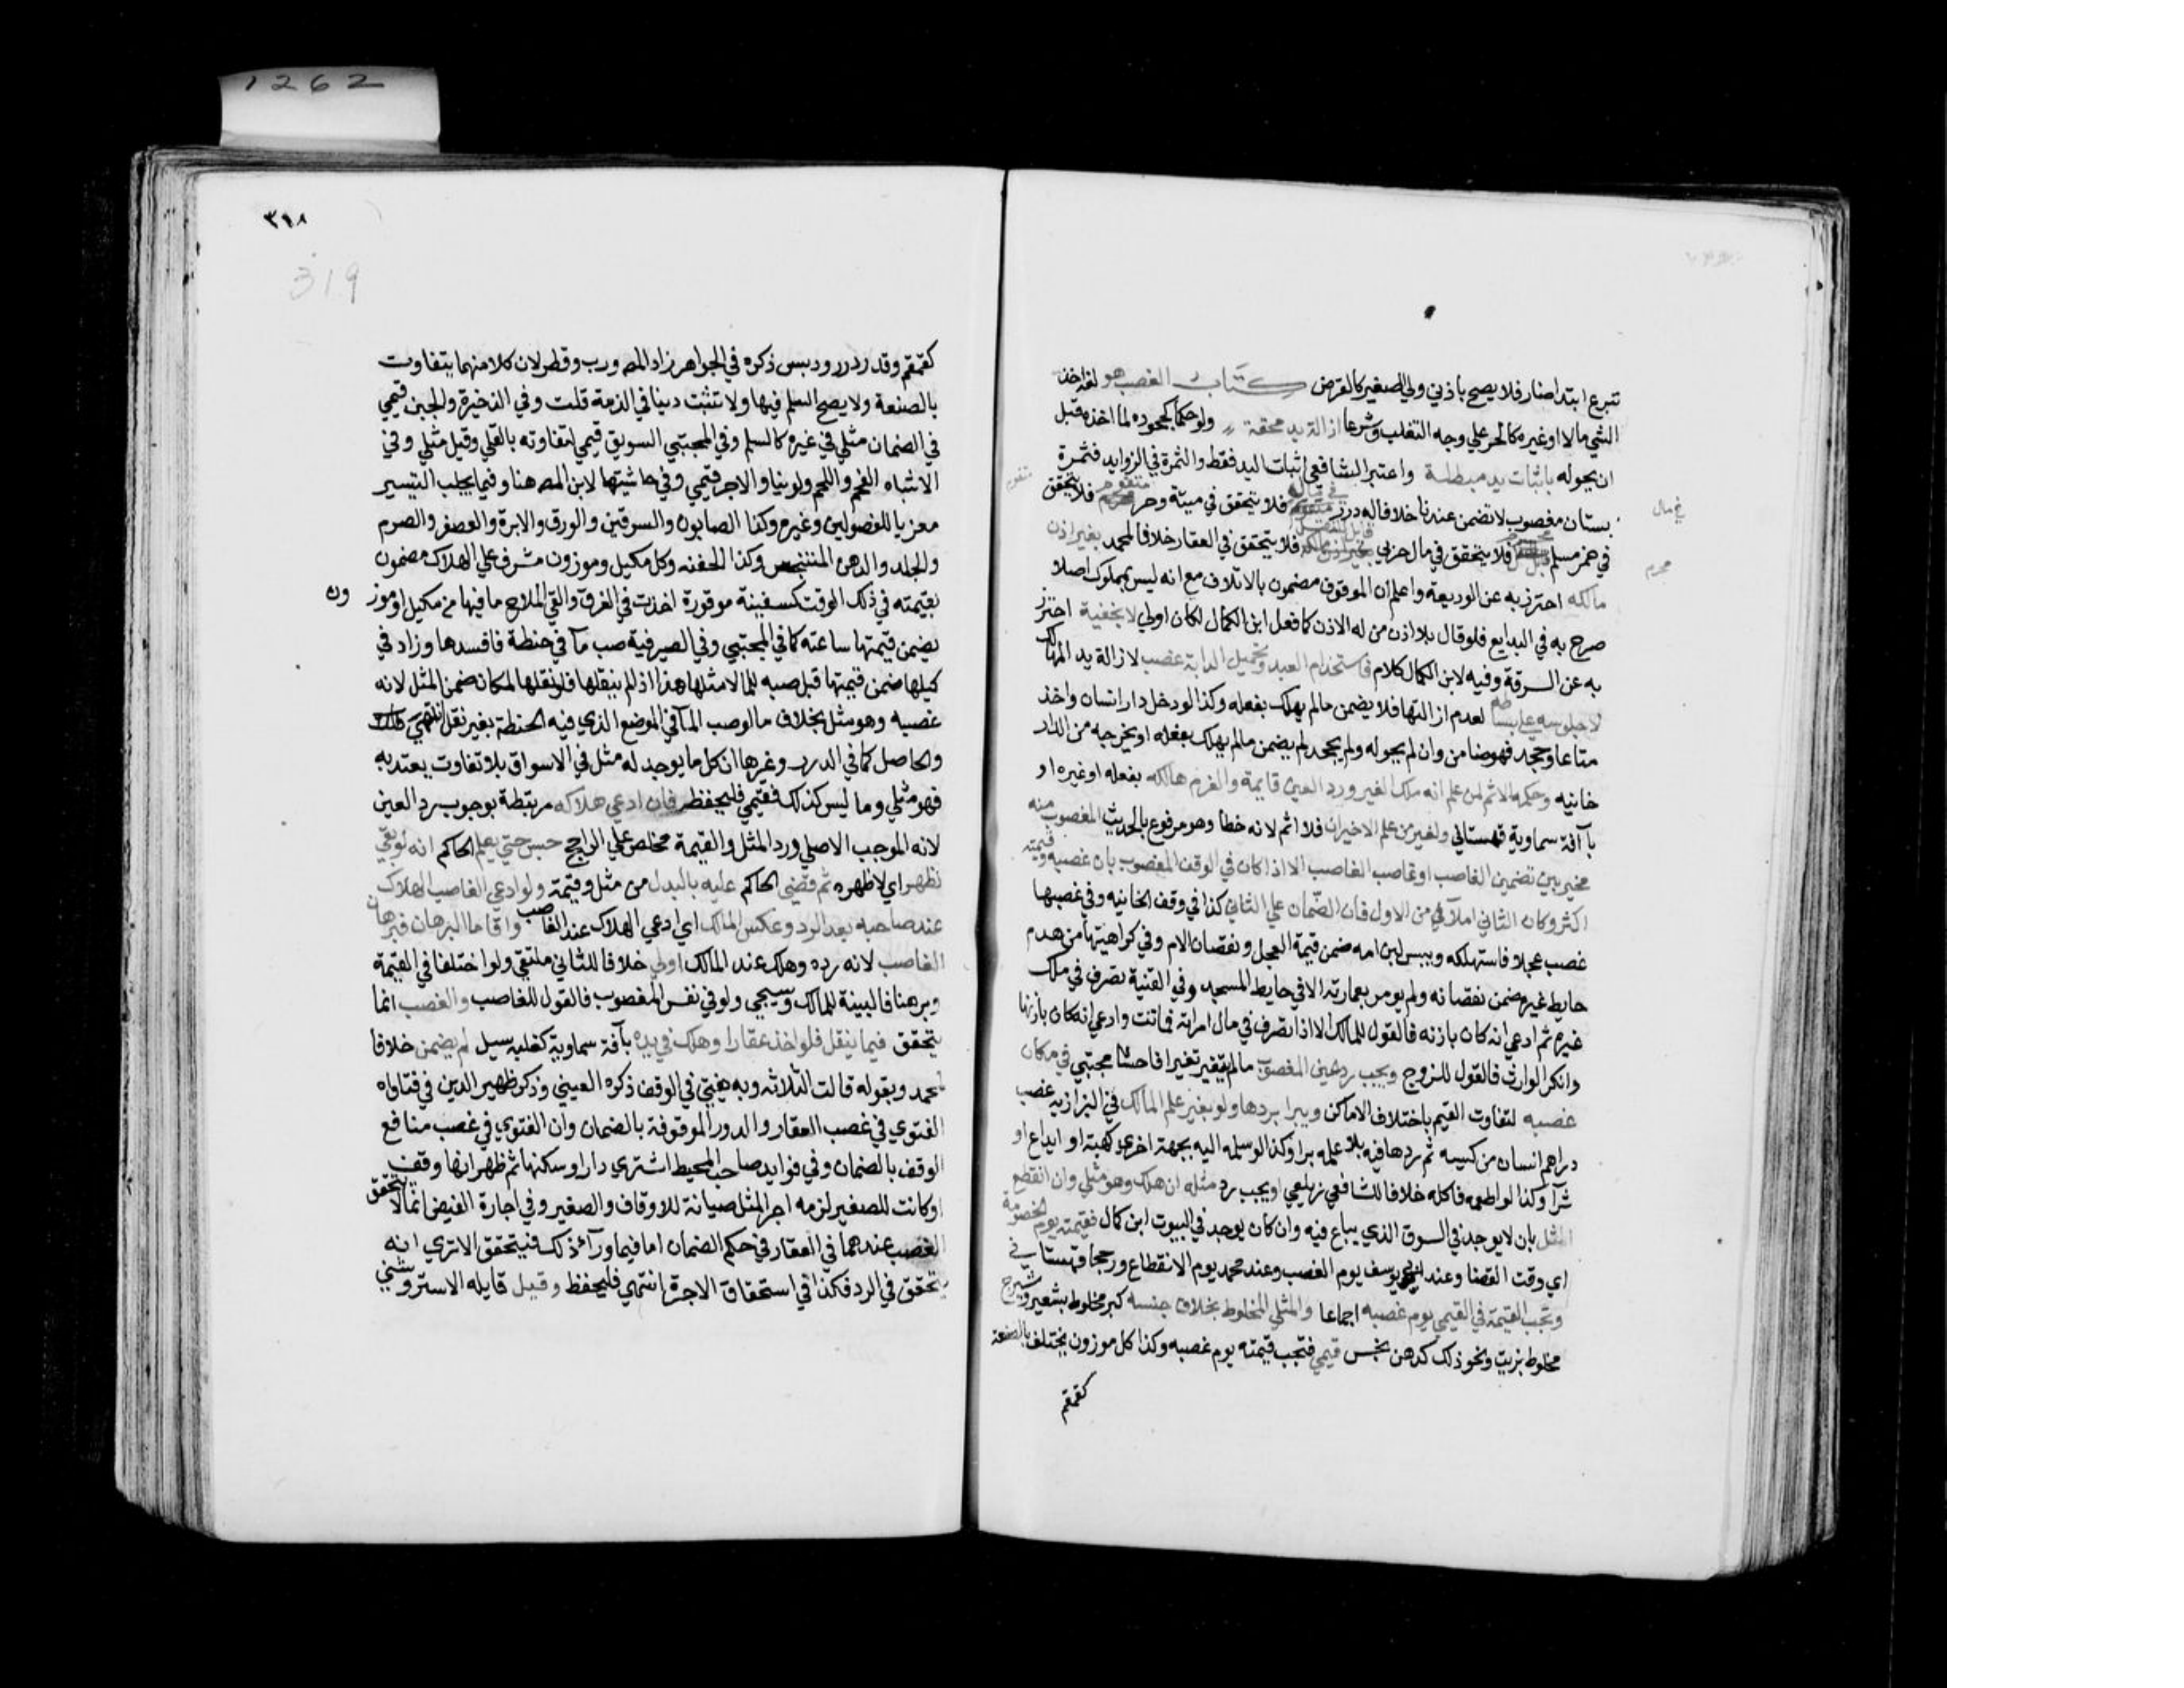 1262
تبرع ابتدا صار فلا يصح باذني ولي الصغير كالقرض كتاب الغصب هو لغة اخذ
الشي مالا او غيره كالحر علي وجه التغلب وشرعا ازالة يد محقة ولو حكما كجحوده لما اخذه قبل
ان يحوله باثبات يد مبطلة واعتبر الشافعي اثبات اليد فقط والثمرة في الزوايد فثمرة
بستان مغصوب لا تضمن عندنا خلافا له درر في مال فلا يتحقق في ميتة وحر متقوم فلا يتحقق
في خمر مسلم محترم فلا يتحقق في مال حربي قابل للنقل فلا يتحقق في العقار خلافا لمحمد بغير اذن
مالكه احترز به عن الوديعة واعلم ان الموقوف مضمون بالاتلاف مع انه ليس بمملوك اصلا
صرح به في البدايع فلو قال بلا اذن من له الاذن كما فعل ابن الكمال لكان اولي لا بخفية احترز
به عن السرقة وفيه لابن الكمال كلام فاستخدام العبد وتحميل الدابة غصب لازالة يد المالك
لا جلوسه علي بساطه لعدم ازالتها فلا يضمن مالم يهلك بفعله وكذا لو دخل دار انسان واخذ
متاعا وجحد فهو ضامن وان لم يحوله ولم يجحد لم يضمن مالم يهلك بفعله او يخرجه من الدار
خانيه وحكمه الاثم لمن علم انه ملك الغير ورد العين قايمة والغرم هالكه بفعله او غيره او
بآفة سماوية قهستاني ولغير من علم الاخيران فلا اثم لانه خطا وهو مرفوع بالحديث المغصوب منه
مخير بين تضمين الغاصب او غاصب الغاصب الا اذا كان في الوقف المغصوب بان غصبه وقيمته
اكثر وكان الثاني املأ من الاول فان الضمان علي الثاني كذا في وقف الخانيه وفي غصبها
غصب عجلا فاستهلكه ويبس لبن امه ضمن قيمة العجل ونقصان الام وفي كراهيتها من هدم
حايط غيره ضمن نقصانه ولم يومر بعمارته الا في حايط المسجد وفي القنية تصرف في ملك
غيره ثم ادعي انه كان باذنه فالقول للمالك الا اذا تصرف في مال امراته فماتت وادعي انه كان باذنها
وانكر الوارث فالقول للزوج ويجب رد عين المغصوب مالم يتغير تغيرا فاحشا مجتبي في مكان
غصبه لتفاوت القيم باختلاف الاماكن ويبرا بردها ولو بغير علم المالك في البزازيه غصب
دراهم انسان من كيسه ثم ردها فيه بلا علمه برا وكذا لو سلمه اليه بجهة اخري كهبة او ايداع او
شرآ وكذا لو اطعمه فاكله خلافا للشافعي زيلعي او يجب رد مثله ان هلك وهو مثلي وان انقطع
المثل بان لا يوجد في السوق الذي يباع فيه وان كان يوجد في البيوت ابن كمال فقيمته يوم الخصومة
اي وقت القضا وعند ابي يوسف يوم الغصب وعند محمد يوم الانقطاع ورجحا قهستاني
وتجب القيمة في القيمي يوم غصبه اجماعا والمثلي المخلوط بخلاف جنسه كبر مخلوط بشعير وشيرج
مخلوط بزيت ونحو ذلك كدهن نجس قيمي فتجب قيمته يوم غصبه وكذا كل موزون يختلف بالصنعة
كقمقم
في مال
متقوم
محرم
٣١٨
319
كقمقم وقدر درر ودبس ذكره في الجواهر زاد المص ورب وقطر لان كلا منهما يتفاوت
بالصنعة ولا يصح السلم فيها ولا تثبت دينا في الذمة قلت وفي الذخيرة والجبن قيمي
في الضمان مثلي في غيره كالسلم وفي المجتبي السويق قيمي لتفاوته بالقلي وقيل مثلي وفي
الاشباه الفحم واللحم ولو نيا والاجر قيمي وفي حاشيتها لابن المص هنا وفيما يجلب التيسير
معزيا للفصولين وغيره وكذا الصابون والسرقين والورق والابرة والعصفر والصرم
والجلد والدهن المتنجس وكذا الحفنه وكل مكيل وموزون مشرف علي الهلاك مضمون
بقيمته في ذلك الوقت كسفينة موقورة اخذت في الغرق والقي الملاح ما فيها من مكيل او موز ون
يضمن قيمتها ساعته كما في المجتبي وفي الصيرفية صب مآ في حنطة فافسدها وزاد في
كيلها ضمن قيمتها قبل صبه للما لا مثلها هذا اذ لم ينقلها فلو نقلها لمكان ضمن المثل لانه
غصبه وهو مثل بخلاف مالو صب المآ في الموضع الذي فيه الحنطة بغير نقل انتهي قلت
والحاصل كما في الدرر وغرها ان كل ما يوجد له مثل في الاسواق بلا تفاوت يعتد به
فهو مثلي وما ليس كذلك فقيمي فليحفظ فان ادعي هلاكه مرتبطة بوجوب رد العين
لانه الموجب الاصلي ورد المثل والقيمة مخلص علي الراجح حبس حتي يعلم الحاكم انه لو بقي
لظهر اي لاظهره ثم قضي الحاكم عليه بالبدل من مثل وقيمة ولو ادعي الغاصب الهلاك
عند صاحبه بعد الرد وعكس المالك اي ادعي الهلاك عند الغاصب واقاما البرهان فبرهان
الغاصب لانه رده وهلك عند المالك اولي خلافا للثاني ملتقي ولو اختلفا في القيمة
وبرهنا فالبينة للمالك وسيجي ولو في نفس المغصوب فالقول للغاصب والغصب انما
يتحقق فيما ينقل فلو اخذ عقارا وهلك في يده بآفة سماوية كغلبه سيل لم يضمن خلافا
لمحمد وبقوله قالت الثلاثه وبه يفتي في الوقف ذكره العيني وذكر ظهير الدين في فتاواه
الفتوي في غصب العقار والدور الموقوفة بالضمان وان الفتوي في غصب منافع
الوقف بالضمان وفي فوايد صاحب المحيط اشتري دارا وسكنها ثم ظهر انها وقف
او كانت للصغير لزمه اجر المثل صيانة للاوقاف والصغير وفي اجارة الفيض انما لا يتحقق
الغصب عندهما في العقار في حكم الضمان اما فيما ورآء ذلك فيتحقق الا تري انه
يتحقق في الرد فكذا في استحقاق الاجرة انتهي فليحفظ وقيل قايله الاستروشني